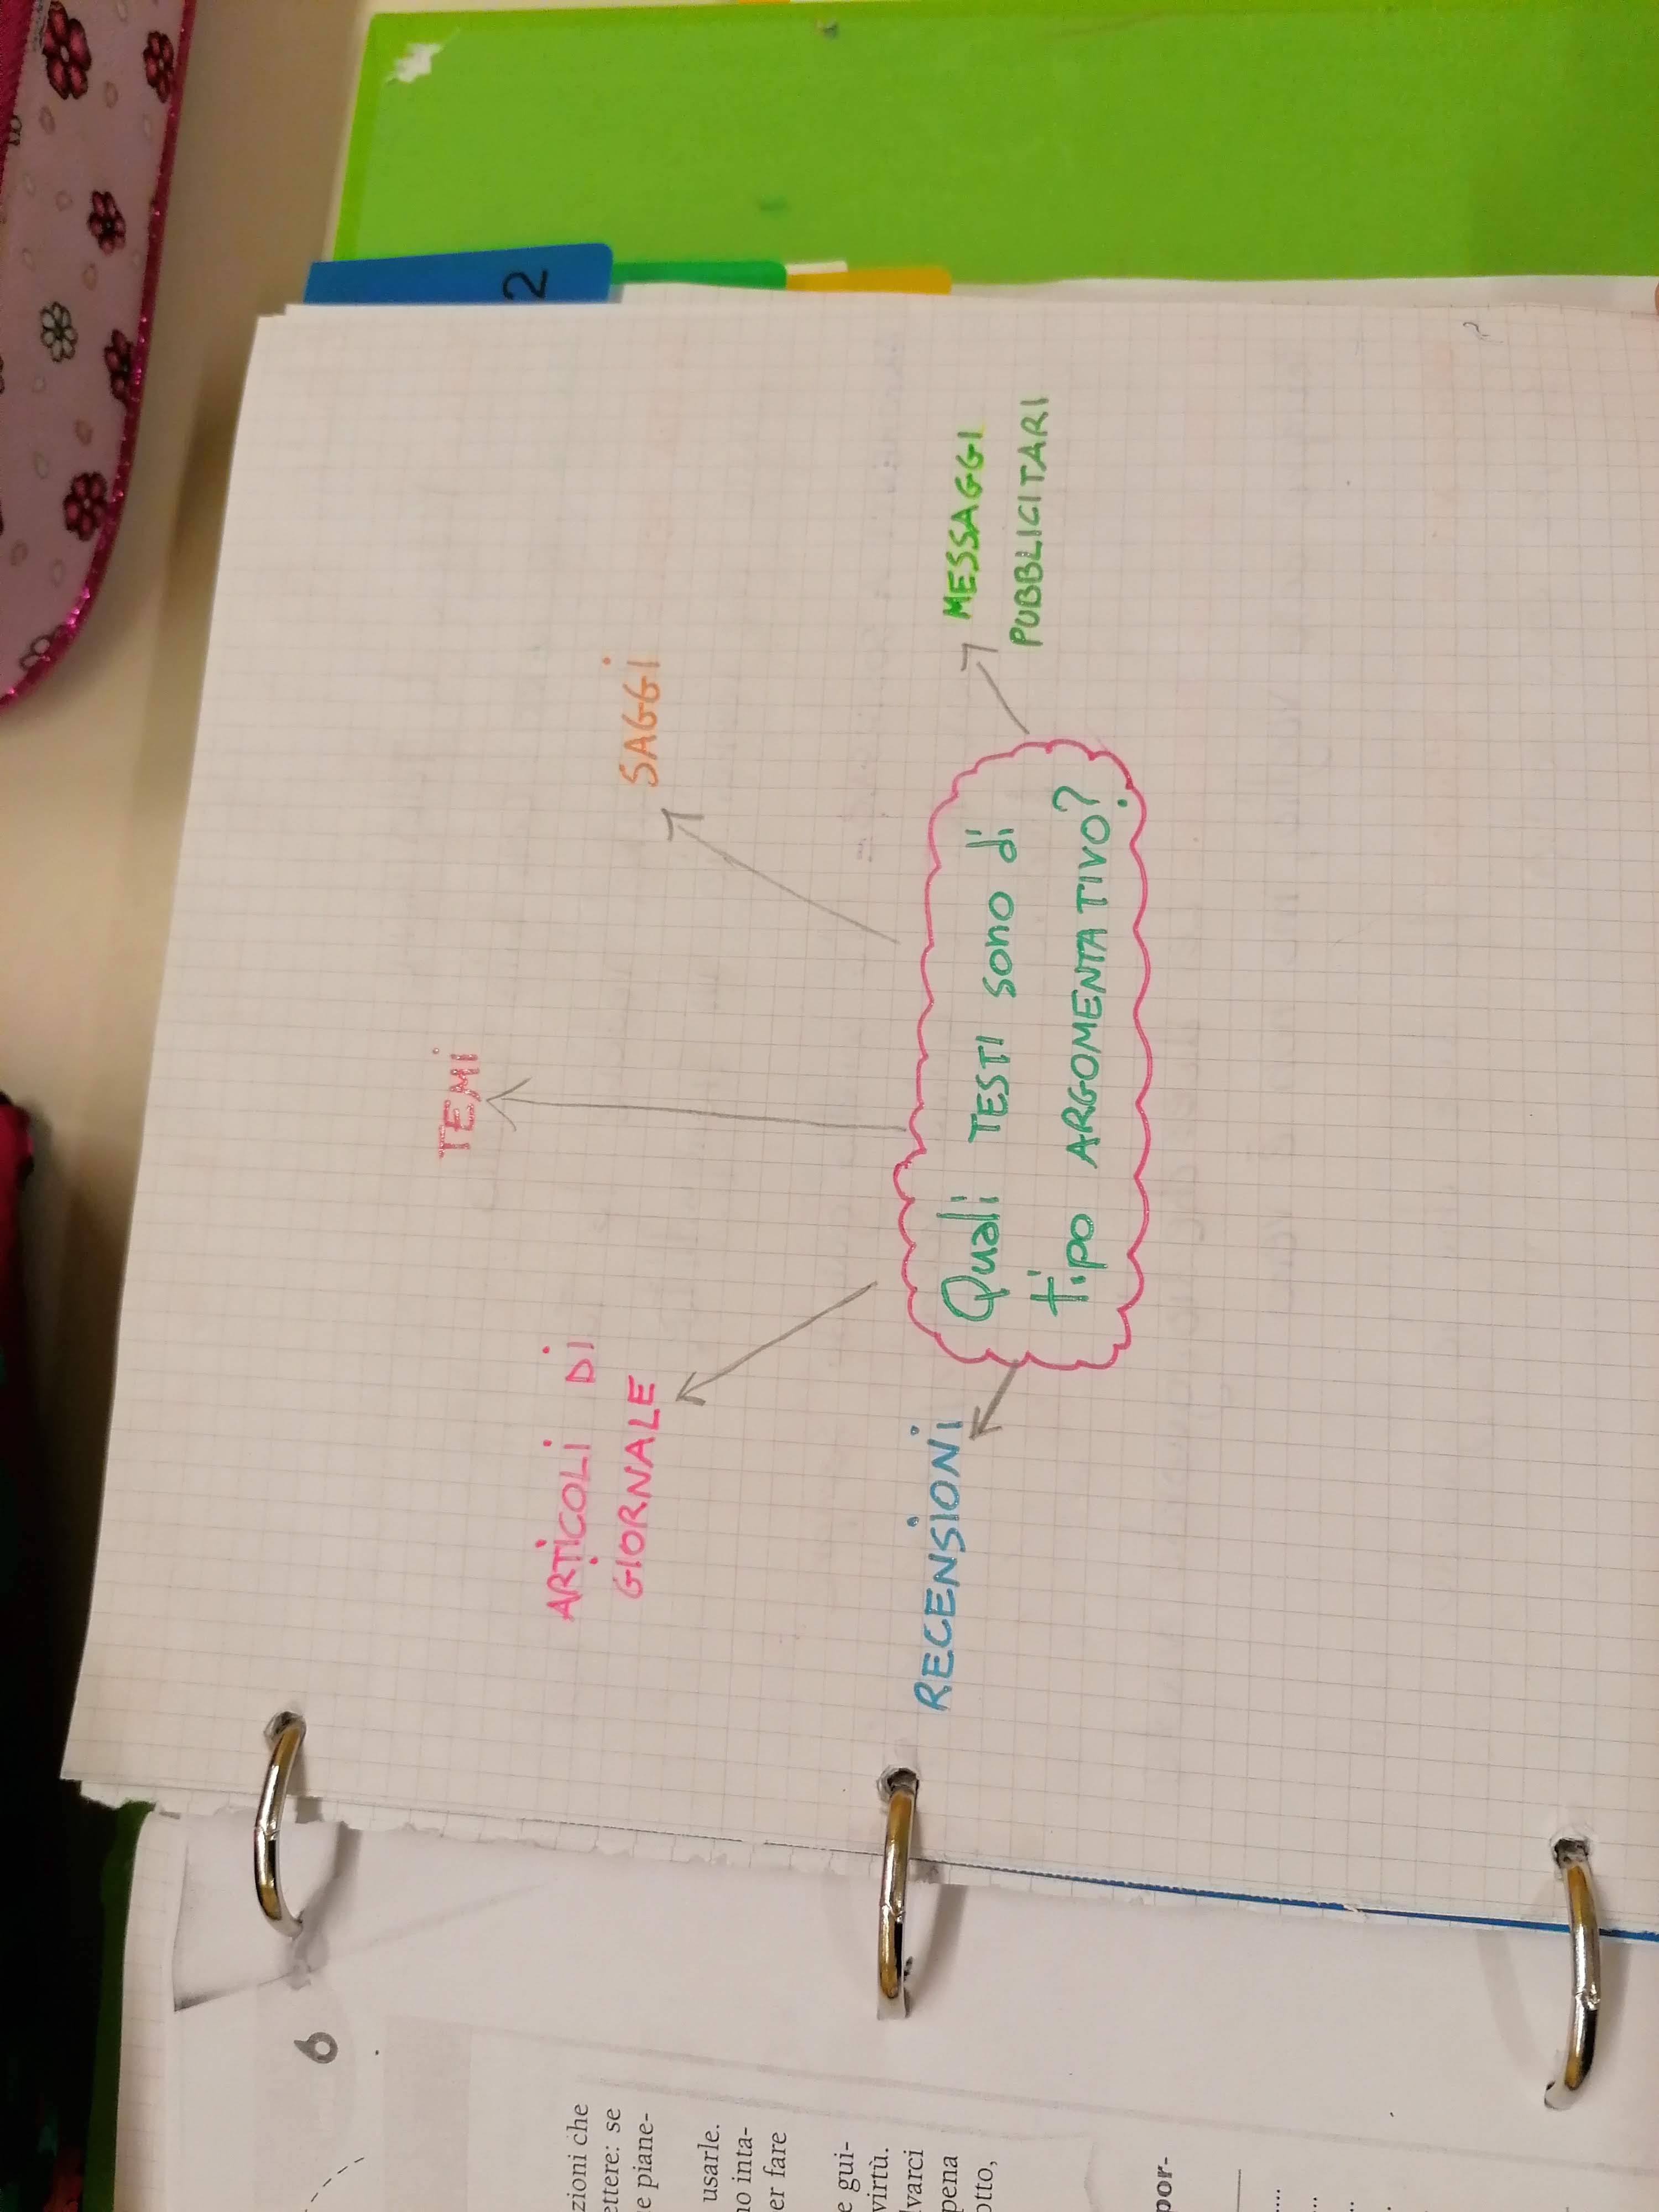 TEMi
SAGGi
ARTiCOLi Di
GIORNALE
MESSAGGI
PUBBLICITARI
RECENSiONi
Quali TESTI sono di
tipo ARGOMENTATIVO?
2
6
zioni che
ettere: se
e piane-
usarle.
no inta-
er fare
e gui-
virtù.
lvarci
pena
otto,
por-